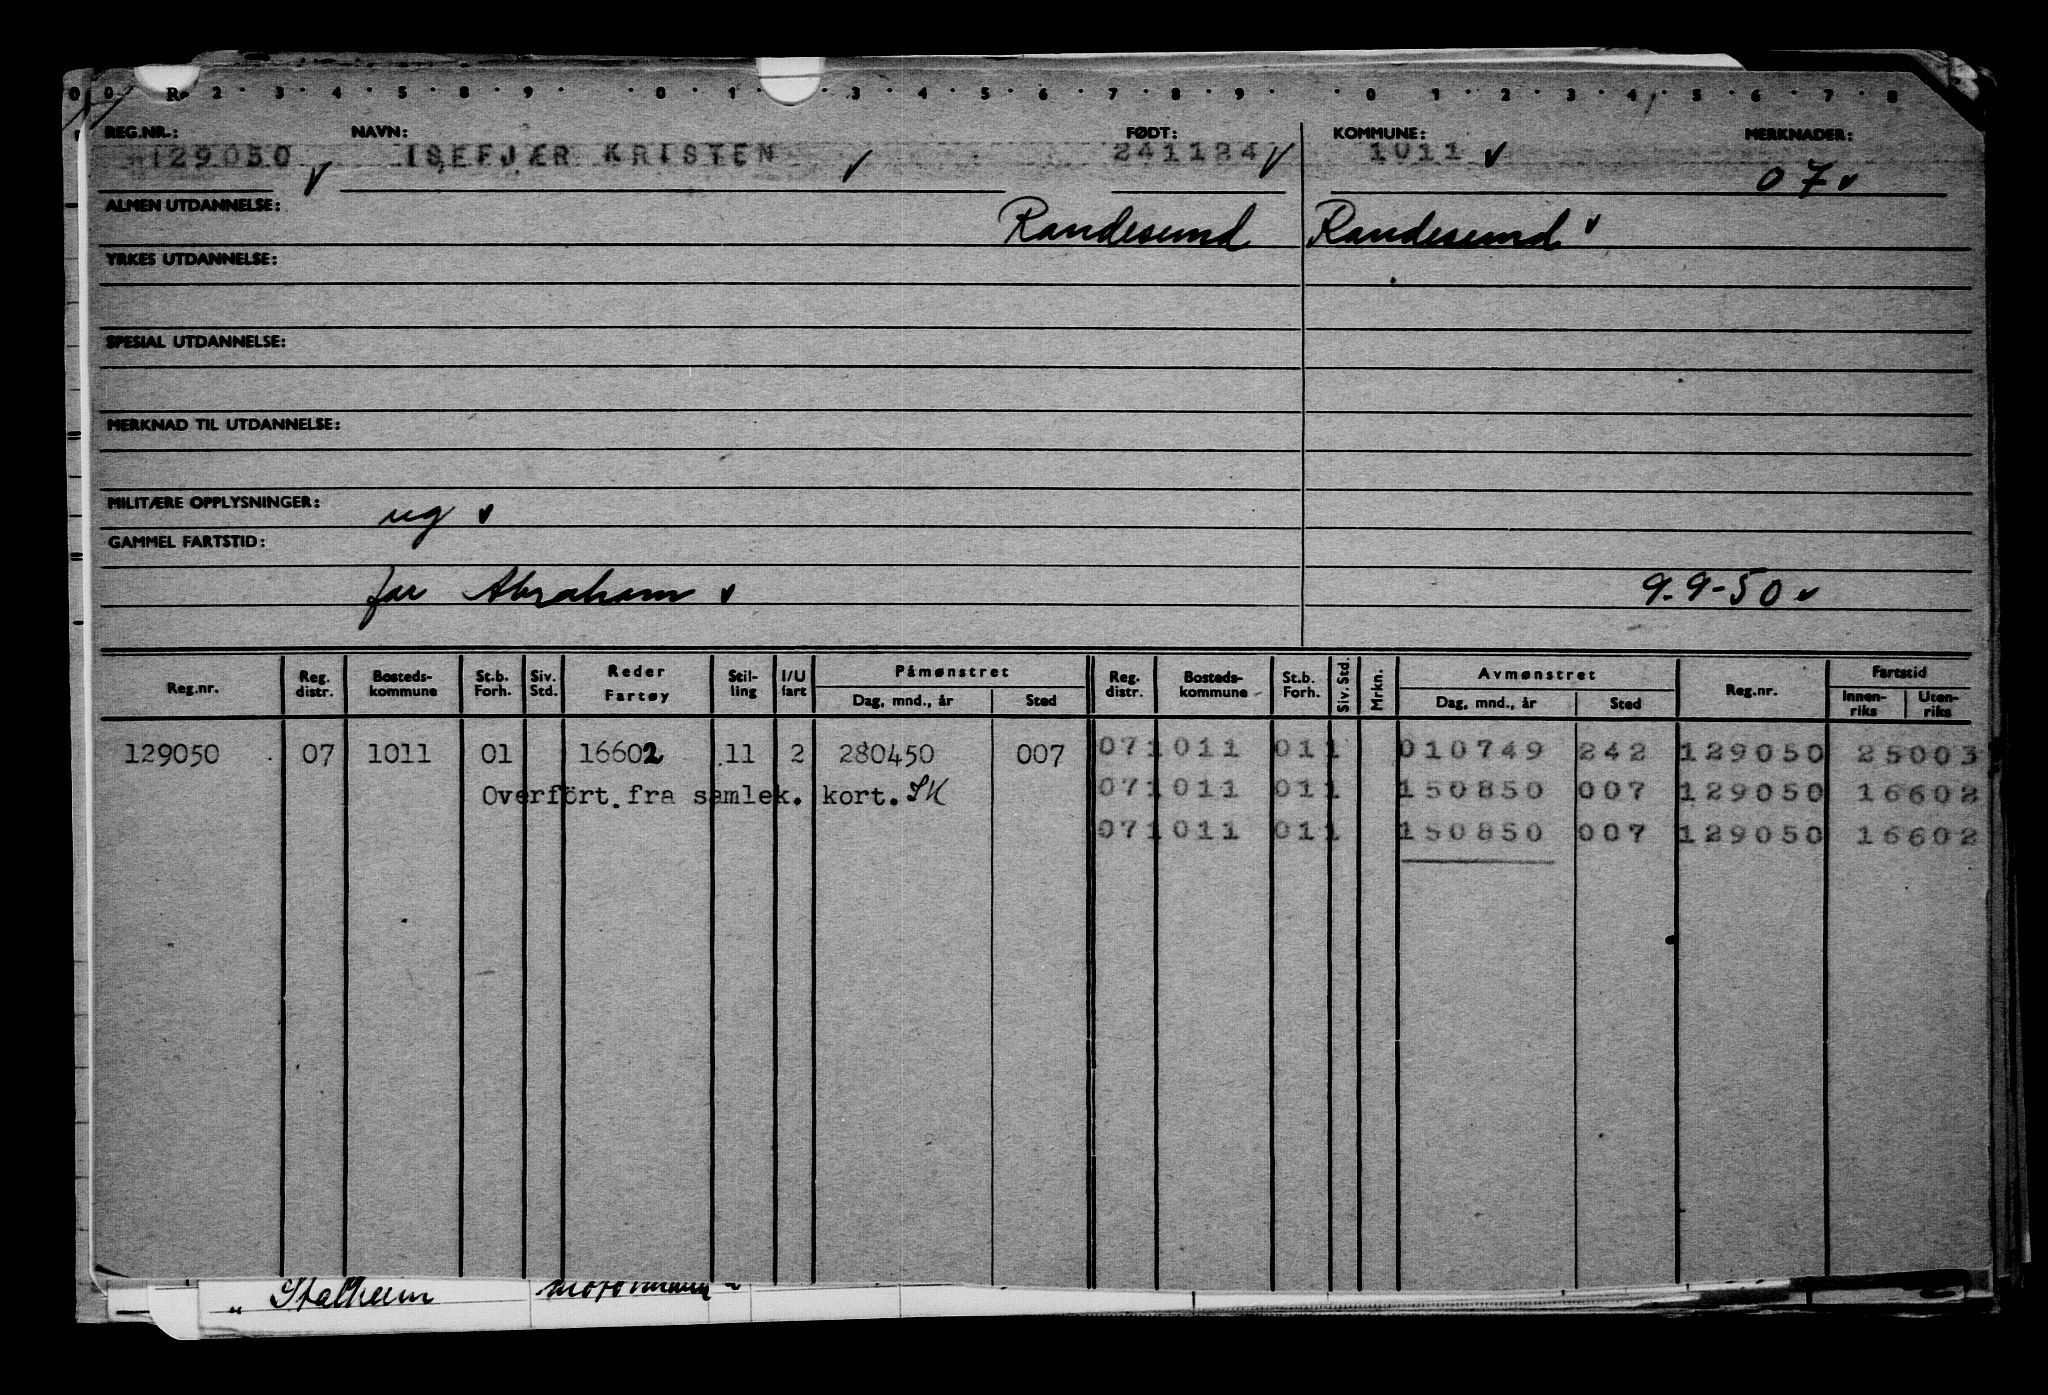 0 0 R 2 3 4 5 8 9 0 1 3 4 5 6 7 8 9 0 1 2 3 4 5 6 7 8
REG.NR.: NAVN: FØDT: KOMMUNE: MERKNADER:
129050 ISEFJÆR KRISTEN 241184 1011 07
ALMEN UTDANNELSE: Randesund Randesund
YRKES UTDANNELSE:
SPESIAL UTDANNELSE:
MERKNAD TIL UTDANNELSE:
MILITÆRE OPPLYSNINGER: ug
GAMMEL FARTSTID:
far Abraham 9.9-50
Reg.nr. Reg. distr. Bosteds-kommune St.b. Forh. Siv. Std. Reder Fartøy Stil-ling I/U fart Påmønstret Dag, mnd., år Sted Reg. distr. Bosteds-kommune St.b. Forh. Siv. Std. Mrkn. Avmønstret Dag, mnd., år Sted Reg.nr. Fartstid Innen-riks Uten-riks
129050 07 1011 01 16602 11 2 280450 007 071011 011 010749 242 129050 25003
Overført.fra samlek. kort. SK 071011 011 150850 007 129050 16602
071011 011 150850 007 129050 16602
" Stalheim